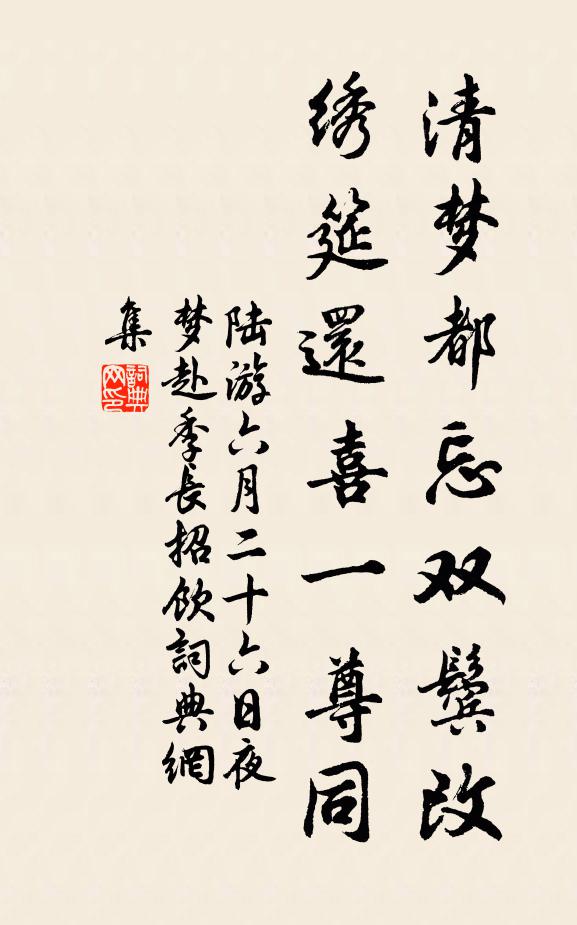 清梦都忘双鬓改
绣筵還喜一尊同
陆游六月二十六日夜
梦赴季长招饮詞典網
集
詞典
网印